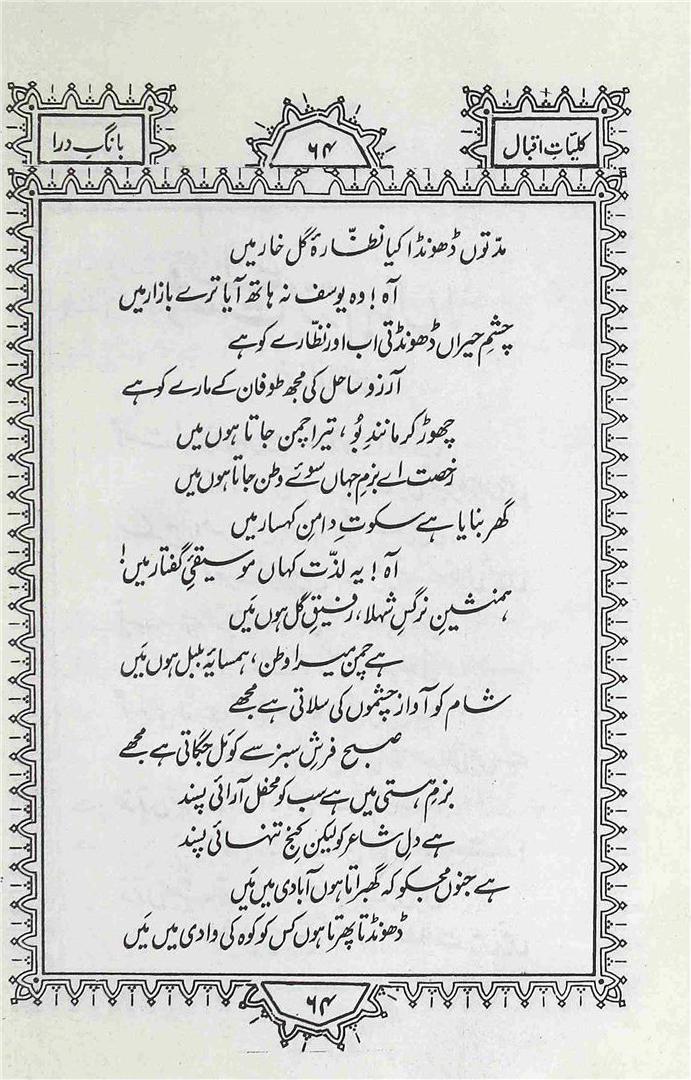 کلیّاتِ اقبال
۶۴
بانگِ درا
مدّتوں ڈھونڈا کیا نظّارۂ گل خار میں
آہ! وہ یوسف نہ ہاتھ آیا ترے بازار میں
چشمِ حیراں ڈھونڈتی اب اور نظّارے کو ہے
آرزو ساحل کی مجھ طوفان کے مارے کو ہے
چھوڑ کر مانندِ بُو، تیرا چمن جاتا ہوں میں
رخصت اے بزمِ جہاں سوئے وطن جاتا ہوں میں
گھر بنایا ہے سکوتِ دامنِ کہسار میں
آہ! یہ لذّت کہاں موسیقیِٔ گفتار میں!
ہمنشینِ نرگسِ شہلا، رفیقِ گل ہوں مَیں
ہے چمن میرا وطن، ہمسایۂ بلبل ہوں مَیں
شام کو آواز چشموں کی سلاتی ہے مجھے
صبح فرشِ سبز سے کوئل جگاتی ہے مجھے
بزمِ ہستی میں ہے سب کو محفل آرائی پسند
ہے دلِ شاعر کو لیکن کنجِ تنہائی پسند
ہے جنوں مجکو کہ گھبراتا ہوں آبادی میں مَیں
ڈھونڈتا پھرتا ہوں کس کو کوہ کی وادی میں مَیں
۶۴